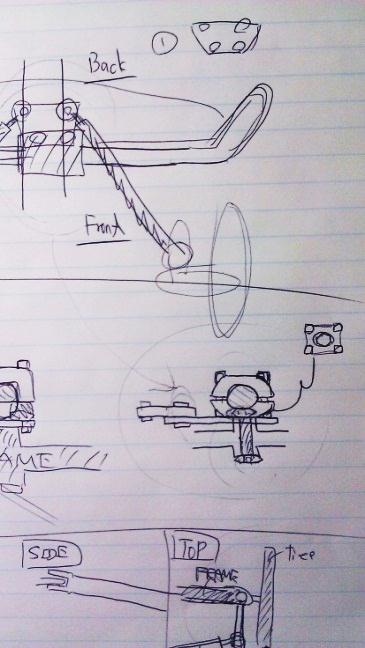 ①
Back
Front
AME
SIDE
TOP
FRAME
tire